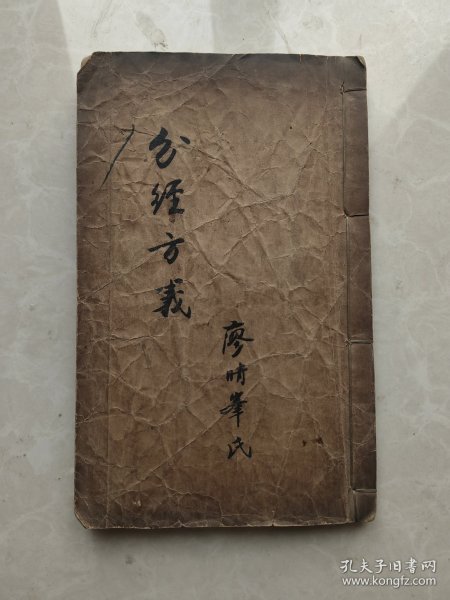 分经方义
廖晴峯氏
孔夫子旧书网
www.kongfz.com